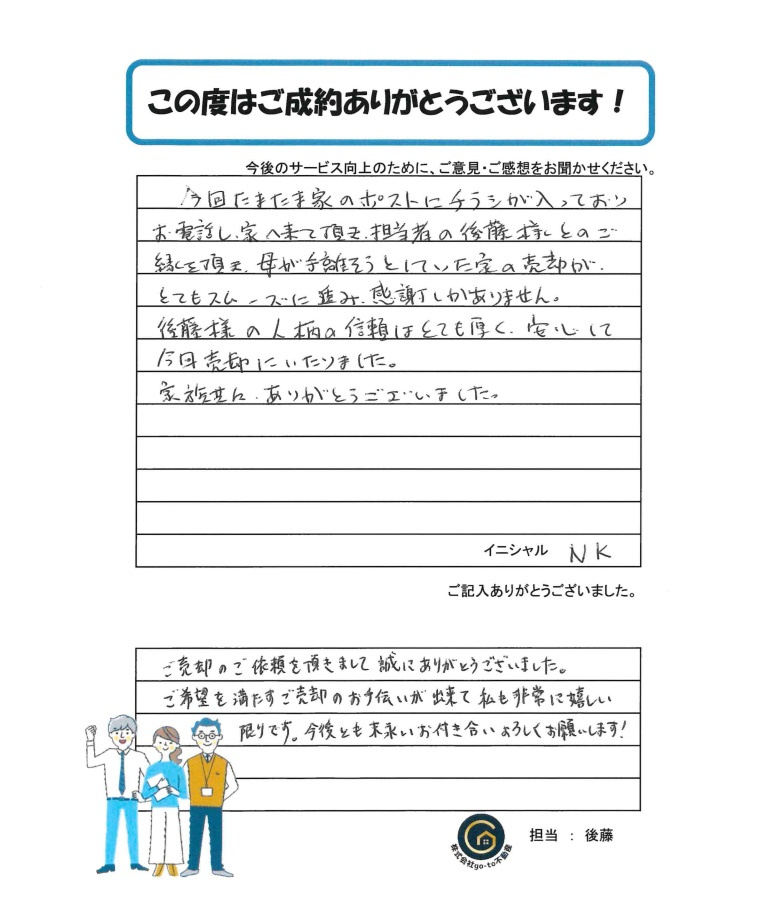 この度はご成約ありがとうございます！
今後のサービス向上のために、ご意見・ご感想をお聞かせください。
今回たまたま家のポストにチラシが入っており
お電話し、家へ来て頂き、担当者の後藤様とのご
縁を頂き、母が手離そうとしていた家の売却が、
とてもスムーズに進み、感謝しかありません。
後藤様の人柄の信頼はとても厚く、安心して
今回売却にいたりました。
家族共に、ありがとうございました。
イニシャル NK
ご記入ありがとうございました。
ご売却のご依頼を頂きまして誠にありがとうございました。
ご希望を満たすご売却のお手伝いが出来て私も非常に嬉しい
限りです。今後とも末永いお付き合いよろしくお願いします！
株式会社go-to不動産
担当 ： 後藤